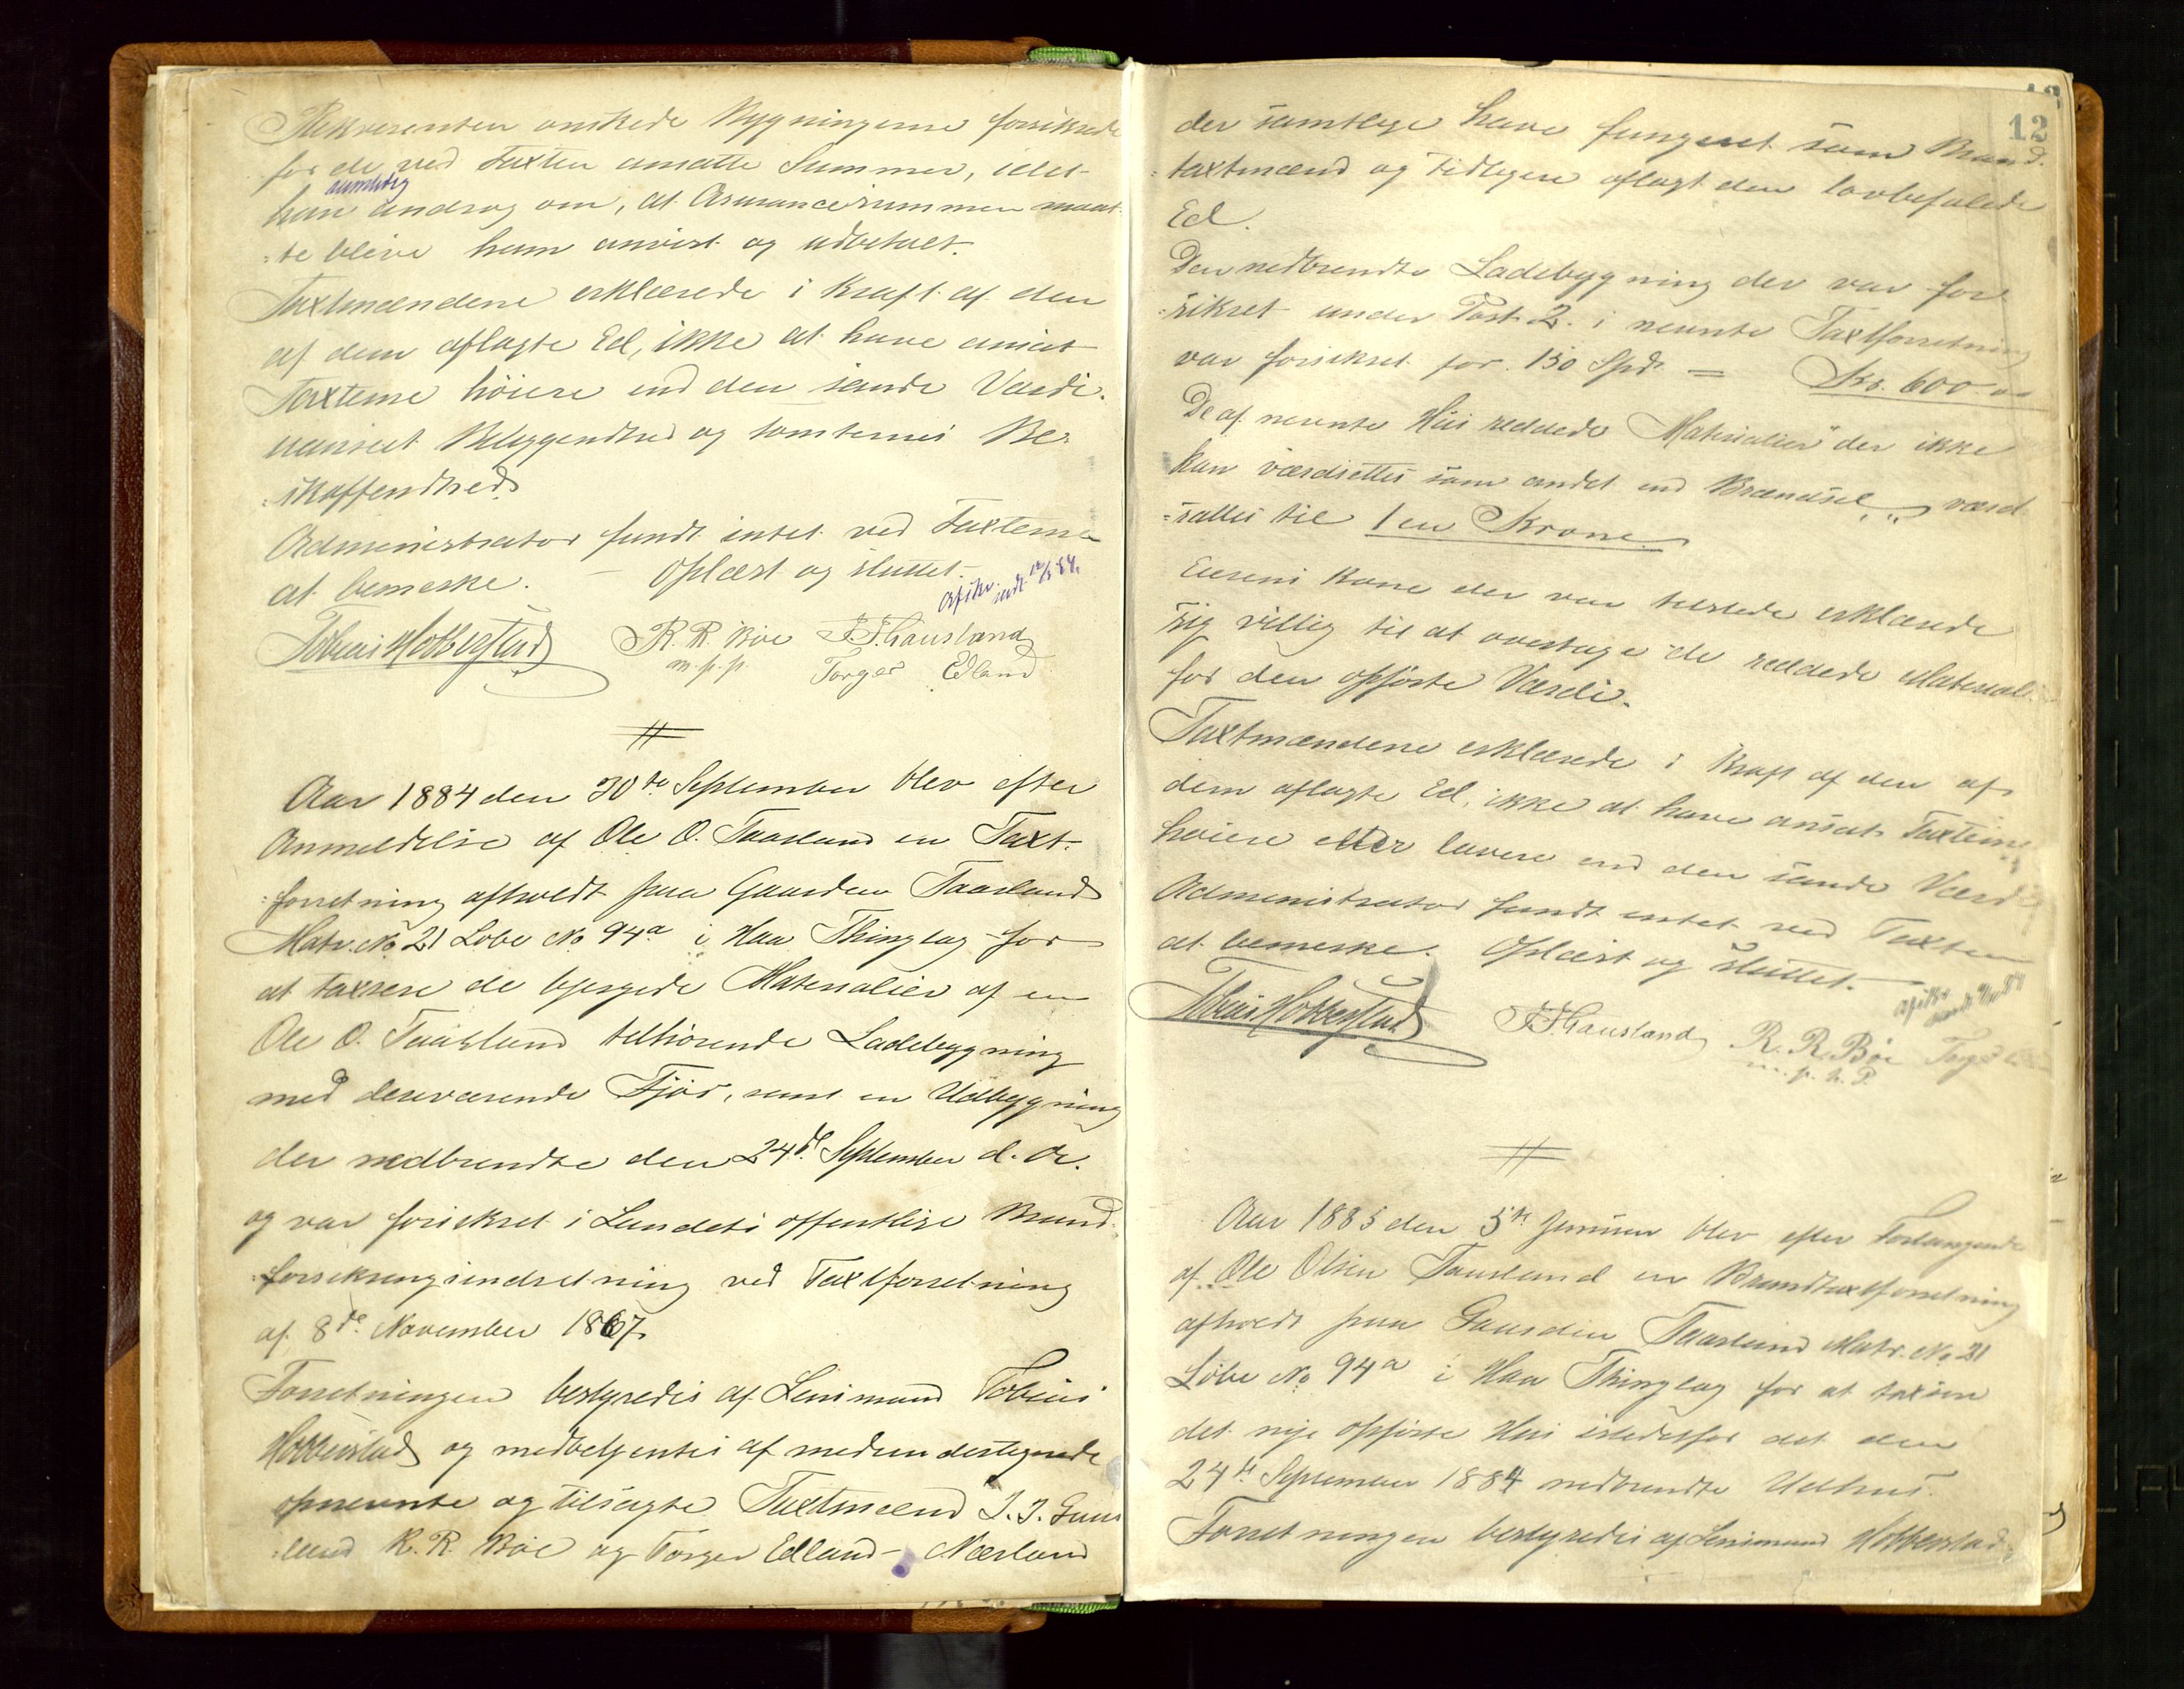 Rekvirenten ønskede Bygningerne forsikrede
for de ved Taxten ansatte Summer, idet
samtidig
han androg om, at Assurancesummen maat-
:te blive ham anvist og udbetalt.
Taxtmændene erklærede i Kraft af den
af dem aflagte Ed, ikke at have ansat
Taxterne höiere end den sande Værdi.
uanseet Beliggendhed og Tomternes Be-
:skaffendhed
Administrator fandt intet ved Taxterne
at bemerke. – Oplæst og sluttet. –
Afskr. sendt
Tobias Hobberstad R. R. Böe T. T. Gausland
m. p. p. Torger Edland
Aar 1884 den 30te September blev efter
Anmeldelse af Ole O. Taarland en Taxt-
:forretning afholdt paa Gaarden Taarland
Matr. No 21 Löbe No 94a i Haa Thinglag for
at taxere de bjergede Materialier af en
Ole O. Taarland tilhørende Ladebygning
med derværende Fjøs, samt en Udbygning
der nedbrendte den 24de September d. A.
og var forsikret i Landets offentlige Brand-
:forsikringsindretning ved Taxtforretning
af 8de November 1867.
Forretningen bestyredes af Lensmand Tobias
Hobberstad og medbetjentes af medundertegnede
opnevnte og tilsagte Taxtmænd I. I. Gaus
:land R. R. Böe og Torger Edland – Nærland
12
der samtlige have fungeret som Brand-
:taxtmænd og tidligere aflagt den lovbefalede
Ed.
Den nedbrendte Ladebygning der var for
:sikret under Post 2. i nevnte Taxtforretning
var forsikret for 150 Spd. = Kr. 600.00
De af nevnte Hus reddede Materialier der ikke
kan værdsettes som andet end Brændsel „ „ værd
:sattes til 1 en Krone.
Eierens Kone der var tilstede erklærede
sig villig til at overtage de reddede Material
for den opförte Værdi.
Taxtmændene erklærede i Kraft af den af
dem aflagte Ed, ikke at have ansat Taxterne
höiere eller lavere end den sande Værdi
Administrator fandt intet ved Taxten
at bemerke. Oplæst og sluttet. –
Afskr. sendt
Tobias Hobberstad T. T. Gausland R. R. Böe
Aar 1885 den 5te Januar blev efter Forlangende
af Ole Olsen Taarland en Brandtaxtforretning
afholdt paa Gaarden Taarland Matr. No 21
Löbe No 94a i Haa Thinglag for at taxere
det nye opförte Hus istedetfor det den
24de September 1884 nedbrendte Udhus.
Forretningen bestyredes af Lensmand Hobberstad